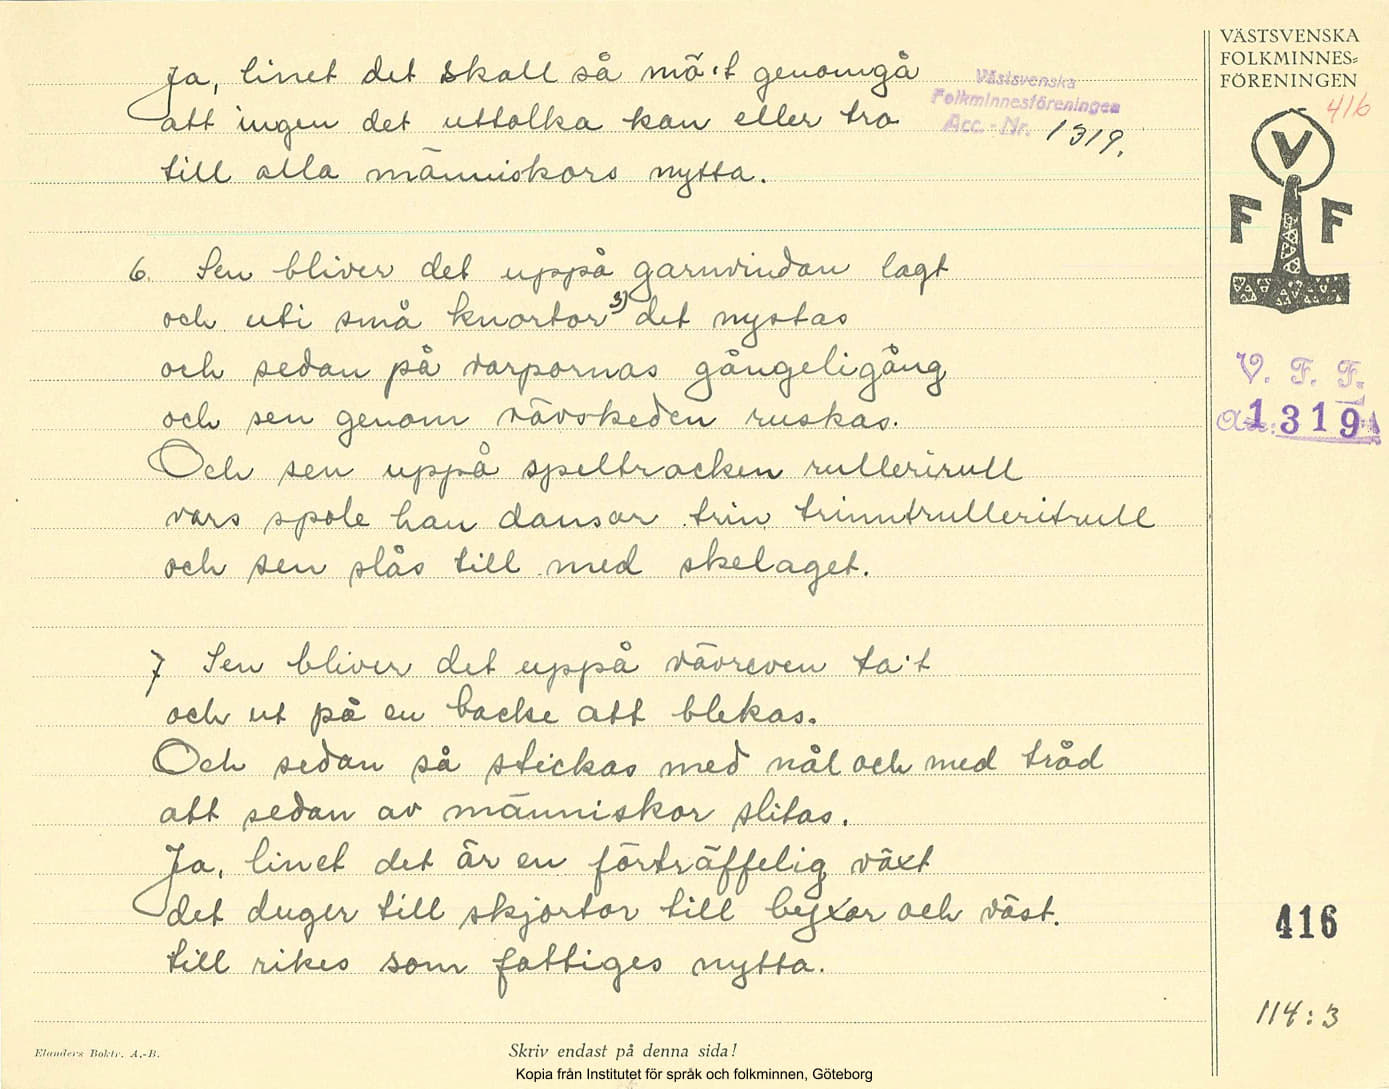 VÄSTSVENSKA
FOLKMINNES=
FÖRENINGEN
416
V
F F
V. F. F.
1319
Västsvenska
Folkminnesföreningen
Acc. - Nr. 1319.
Ja, linet det skall så mö't genomgå
att ingen det uttolka kan eller tro
till alla människors nytta.
6. Sen bliver det uppå garnvindan lagt
och uti små knortor 3) det nystas
och sedan på varpornas gångeligång
och sen genom vävskeden ruskas.
Och sen uppå speltracken rullerirull
vars spole han dansar trin trinntrulleritrull
och sen slås till med skelaget.
7 Sen bliver det uppå vävreven ta't
och ut på en backe att blekas.
Och sedan så stickas med nål och med tråd
att sedan av människor slitas.
Ja, linet det är en förträffelig växt
det duger till skjortor till byxor och väst.
till rikes som fattiges nytta.
416
114:3
Elanders Boktr. A.-B.
Skriv endast på denna sida!
Kopia från Institutet för språk och folkminnen, Göteborg